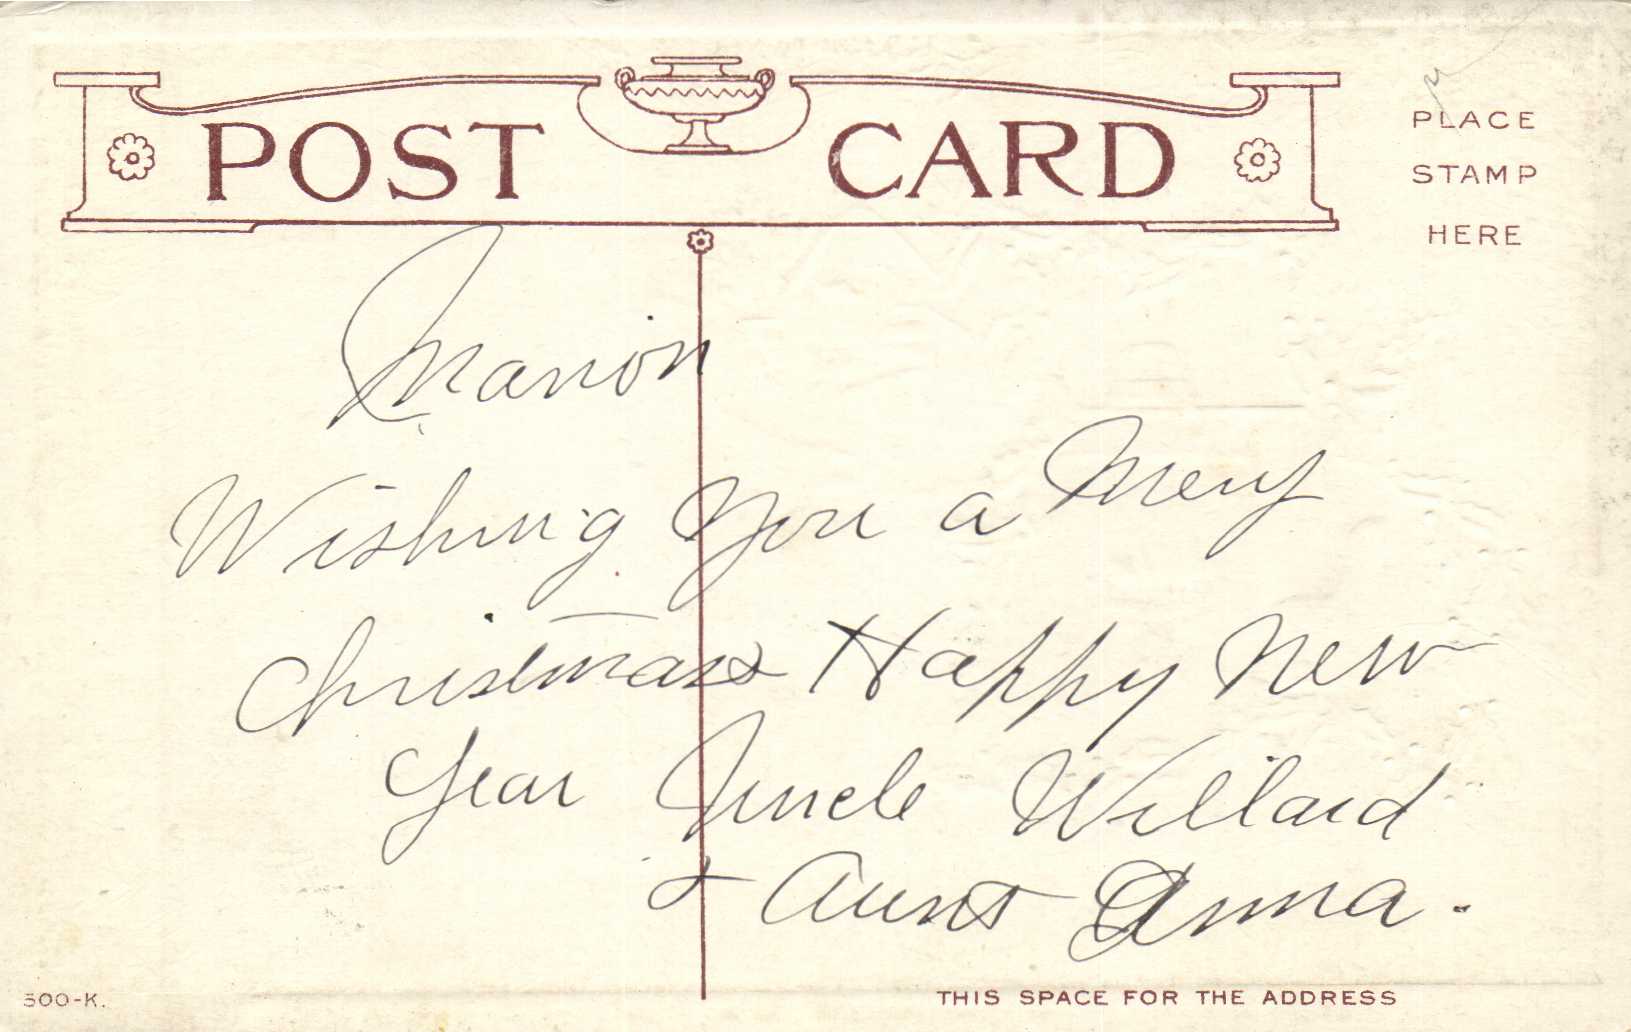 POST CARD
PLACE
STAMP
HERE
Marion
Wishing you a Merry
Christmas Happy New
Year Uncle Willard
& Aunt Anna.
500-K.
THIS SPACE FOR THE ADDRESS